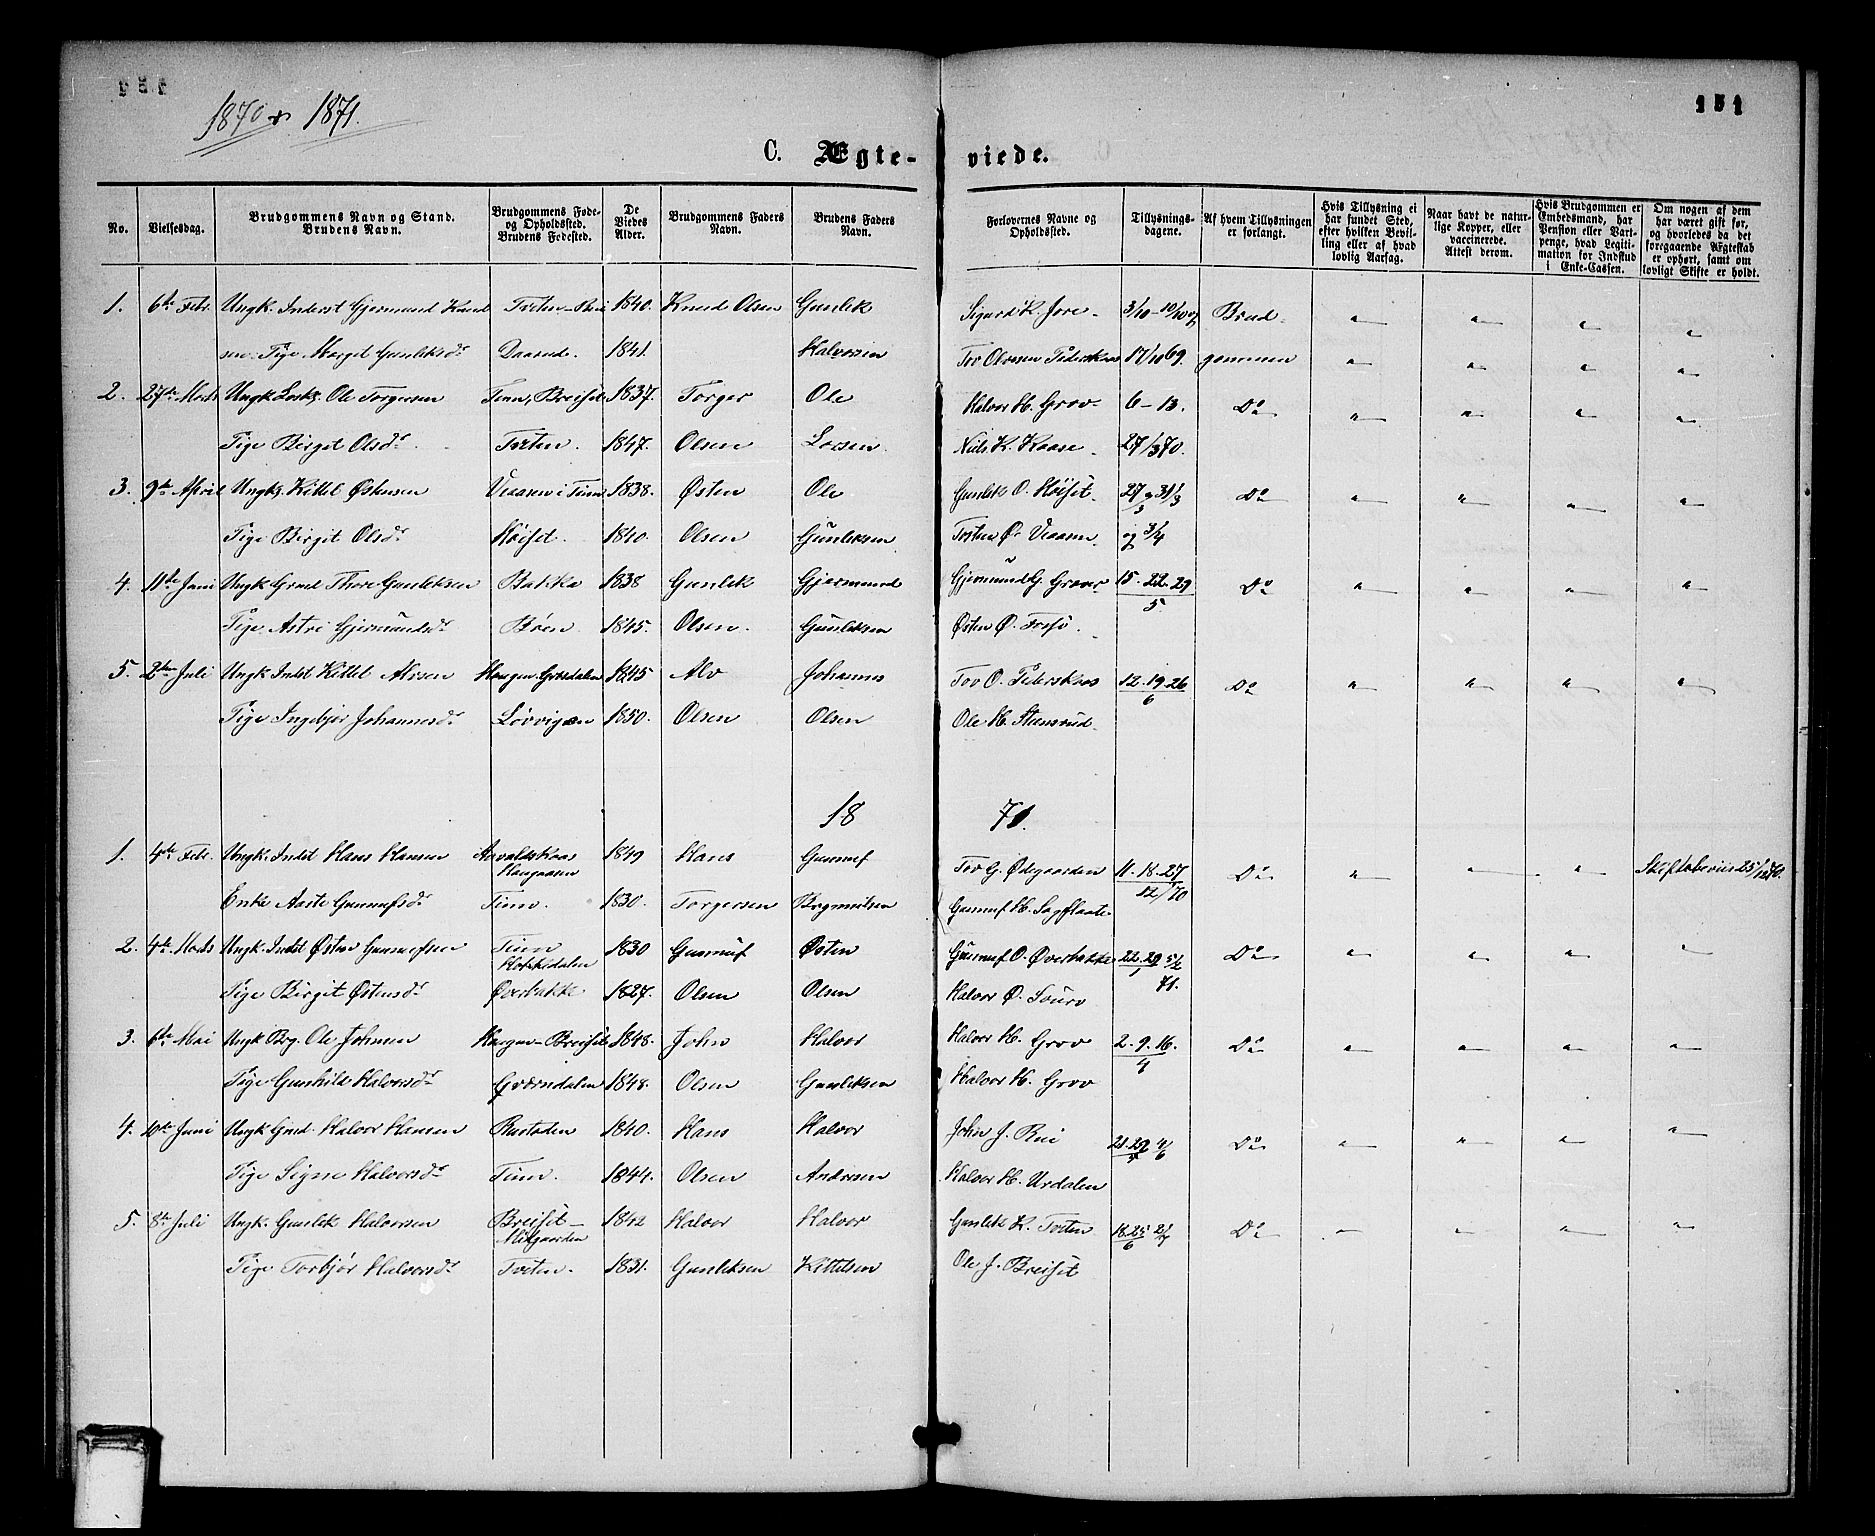 151
1870 & 1871.
C. Ægte-viede.
No. Vielsesdag. Brudgommens Navn og Stand. Brudens Navn. Brudgommens Føde- og Opholdsted. Brudens Fødested. De Viedes Alder. Brudgommens Faders Navn. Brudens Faders Navn. Forlovernes Navne og Opholdsted. Tillysnings-dagene. Af hvem Tillysningen er forlangt. Hvis Tillysning ei har fundet Sted, efter hvilken Bevilling eller af hvad lovlig Aarsag. Naar havt de naturlige Kopper, eller vaccinerede. Attest derom. Hvis Brudgommen er Embedsmand, har Pension eller Vartpenge, hvad Legitimation for Indskud i Enke-Cassen. Om nogen af dem har været gift før, og hvorledes da det foregaaende Ægteskab er ophørt, samt om lovligt Skifte er holdt.
1. 6te Febr. Ungk. Inderst Gjermund Knud Tveten 1840. Knud Olsen Gunlek Sigurd K. Jore 3/10 - 10/10 og Brud- " " " "
sen. Pige Margit Gunleksdr Daarud. 1841. Halvorsen Tov Olvessen Pederskaas 17/10 69. gommen " " " "
2. 27de Marts Ungk. Losk. Ole Torgersen Tinn, Breiset 1837. Torger Ole Halvor H. Grov 6 - 13. Do " " " "
Pige Birgit Olsdr Tveten. 1847. Olsen Larsen Niels K. Kaase 27/3 70.
3. 9de April Ungk. Kittel Østensen Veaasen i Tinn 1838. Østen Ole Gunlek O. Høiset 27/3 og 31/3 Do " " " "
Pige Birgit Olsdr Høiset. 1840. Olsen Gunleksen Torsten Ø. Veaasen og 3/4
4. 11te Juni Ungk Grmd Thore Gunleksen Bakka 1838 Gunlek Gjermund Gjermund G. Graver 15. 22. 29/5 Do " " " "
Pige Astri Gjermundsdr Bøen 1845. Olsen. Gunleksen Østen Ø. Frosø.
5. 2den Juli Ungk Indst Kittel Alvsen Haugen Grosdalen 1845 Alv Johannes Tov O. Pederskaas 12. 19. 26/6 Do " " " "
Pige Ingebjør Johannesdr Løvvigen 1850. Olsen Olsen Ole H. Steensrud
1871.
1. 4de Febr. Ungk. Indst Hans Hansen Haugaasen 1849 Hans Gunnuf Tov G. Ødegaarden 11. 18. 27 Do " " " Skiftebeviis 25/1 1870.
Enke Aaste Gunnufsdr Tinn. 1830. Torgersen Brynnulsen Gunnuf H. Sagflaate 12/70
2. 4de Marts Ungk. Indst Østen Gunnufsen Tinn 1830 Gunnuf Østen Gunnuf O. Øverbakke 22. 29/1 5/2 Do " " " "
Pige Birgit Østensdr Øverbakke 1827. Olsen Olsen Halvor Ø. 71.
3. 6te Mai Ungk Brg. Ole Johnsen Haugen - Breiset 1848. John Halvor Halvor H. Grov 2. 9. 16./4 Do " " " "
Pige Gunhild Halvorsdr Gvæsdalen 1848. Olsen Gunleksen Halvor H. Grov
4. 10de Juni Ungk Gmd. Halvor Hansen Rustaden 1840. Hans Halvor John J. Bui 21. 29/5 4/6 Do " " " "
Pige Signe Halvorsdr Tinn. 1844. Olsen Andersen Halvor H. Urdalen
5. 8de Juli Ungk. Gunlek Halvorsen Breiset - Midgaarden 1842 Halvor Halvor Gunlek K. Tveten 18. 25/6 2/7 Do " " " "
Pige Torbjør Halvorsdr Tveten. 1831. Gunleksen Kittelsen Ole J. Breiset